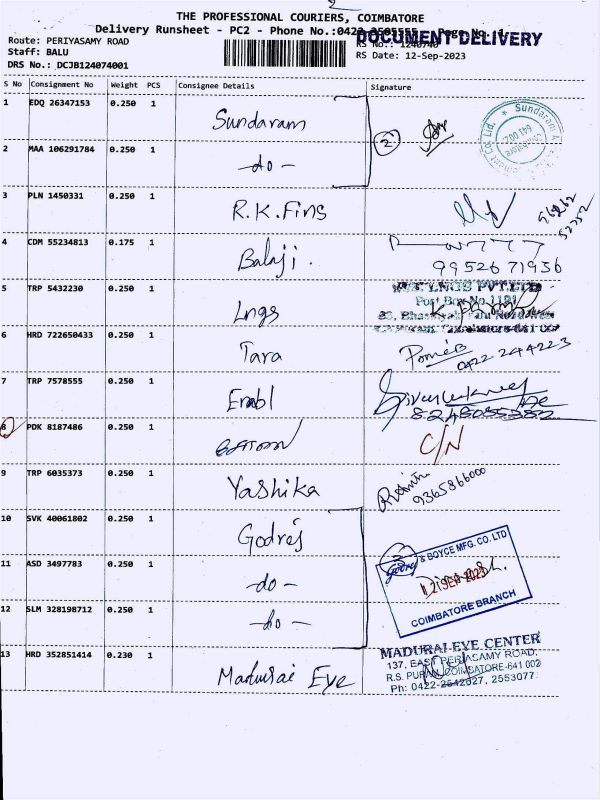 2
THE PROFESSIONAL COURIERS, COIMBATORE
Delivery Runsheet - PC2 - Phone No.:0422 Page No. 1
DOCUMENT DELIVERY
Route: PERIYASAMY ROAD
RS No.: 1240740
Staff: BALU
RS Date: 12-Sep-2023
DRS No.: DCJB124074001
S No Consignment No Weight PCS Consignee Details Signature
1 EDQ 26347153 0.250 1 Sundaram
2
Sundaram
641 002
Coimbatore
2 MAA 106291784 0.250 1 -do-
3 PLN 1450331 0.250 1 R.K.Fins
52252
4 CDM 55234813 0.175 1 Balaji.
9952671936
5 TRP 5432230 0.250 1 Lngs
LNGS PVT.LTD
Post Box No.1101
6 HRD 722650433 0.250 1 Tara
0422 244223
7 TRP 7578555 0.250 1 Enabl
8248055352
8 PDK 8187486 0.250 1
C/N
9 TRP 6035373 0.250 1 Yashika
9365866000
10 SVK 40061802 0.250 1 Godrej
11 ASD 3497783 0.250 1 -do-
Godrej & BOYCE MFG. CO. LTD
12 SEP 2023
COIMBATORE BRANCH
12 SLM 328198712 0.250 1 -do-
13 HRD 352851414 0.230 1 Madurai Eye
MADURAI EYE CENTER
137, EAST PERIASAMY ROAD,
R.S. PURAM, COIMBATORE-641 002
Ph: 0422-2542827, 2553077